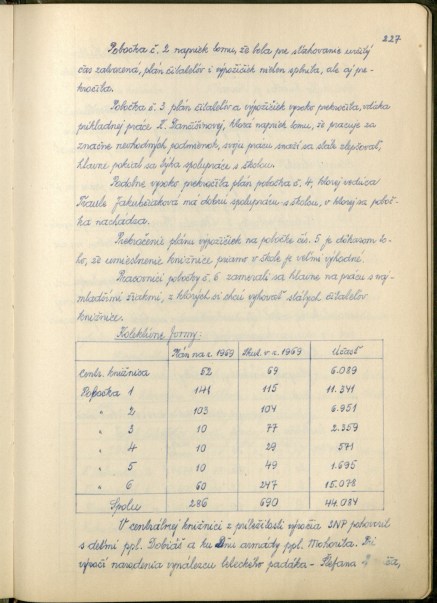 227
Pobočka č. 2 napriek tomu, že bola pre sťahovanie určitý
čas zatvorená, plán čitateľov i výpožičiek nielen splnila, ale aj pre-
kročila.
Pobočka č. 3 plán čitateľov a výpožičiek vysoko prekročila, vďaka
príkladnej práce Z. , ktorá napriek tomu, že pracuje za
značne nevhodných podmienkach, svoju prácu snaží sa stále zlepšovať,
hlavne pokiaľ sa týka spolupráce s školou.
Podobne vysoko prekročila plán pobočka č. 4, ktorej vedúca
Jakubčiaková má dobrú spoluprácu s školou, v ktorej sa poboč-
ka nachádza.
Prekročenie plánu výpožičiek na pobočke čís. 5 je dôkazom to-
ho, že umiestnenie knižnice priamo v škole je veľmi výhodné.
Pracovníci pobočky č. 6 zamerali sa hlavne na prácu s naj-
mladšími žiakmi, z ktorých si chcú vychovať stálych čitateľov
knižnice.
Kolektívne formy:
Plán na r. 1969 Skut. v r. 1969 Účasť
Centr. knižnica 52 69 6.089
Pobočka 1 141 115 11.341
" 2 103 104 6.951
" 3 10 77 2.359
" 4 10 29 571
" 5 10 49 1.695
" 6 60 247 15.078
Spolu 286 690 44.084
V centrálnej knižnici z príležitosti výročia SNP pohovoril
s deťmi ppl. Dobiáš a ku Dňu armády ppl. Mohorita. Pri
výročí narodenia vynálezcu leteckého padáka - Štefana